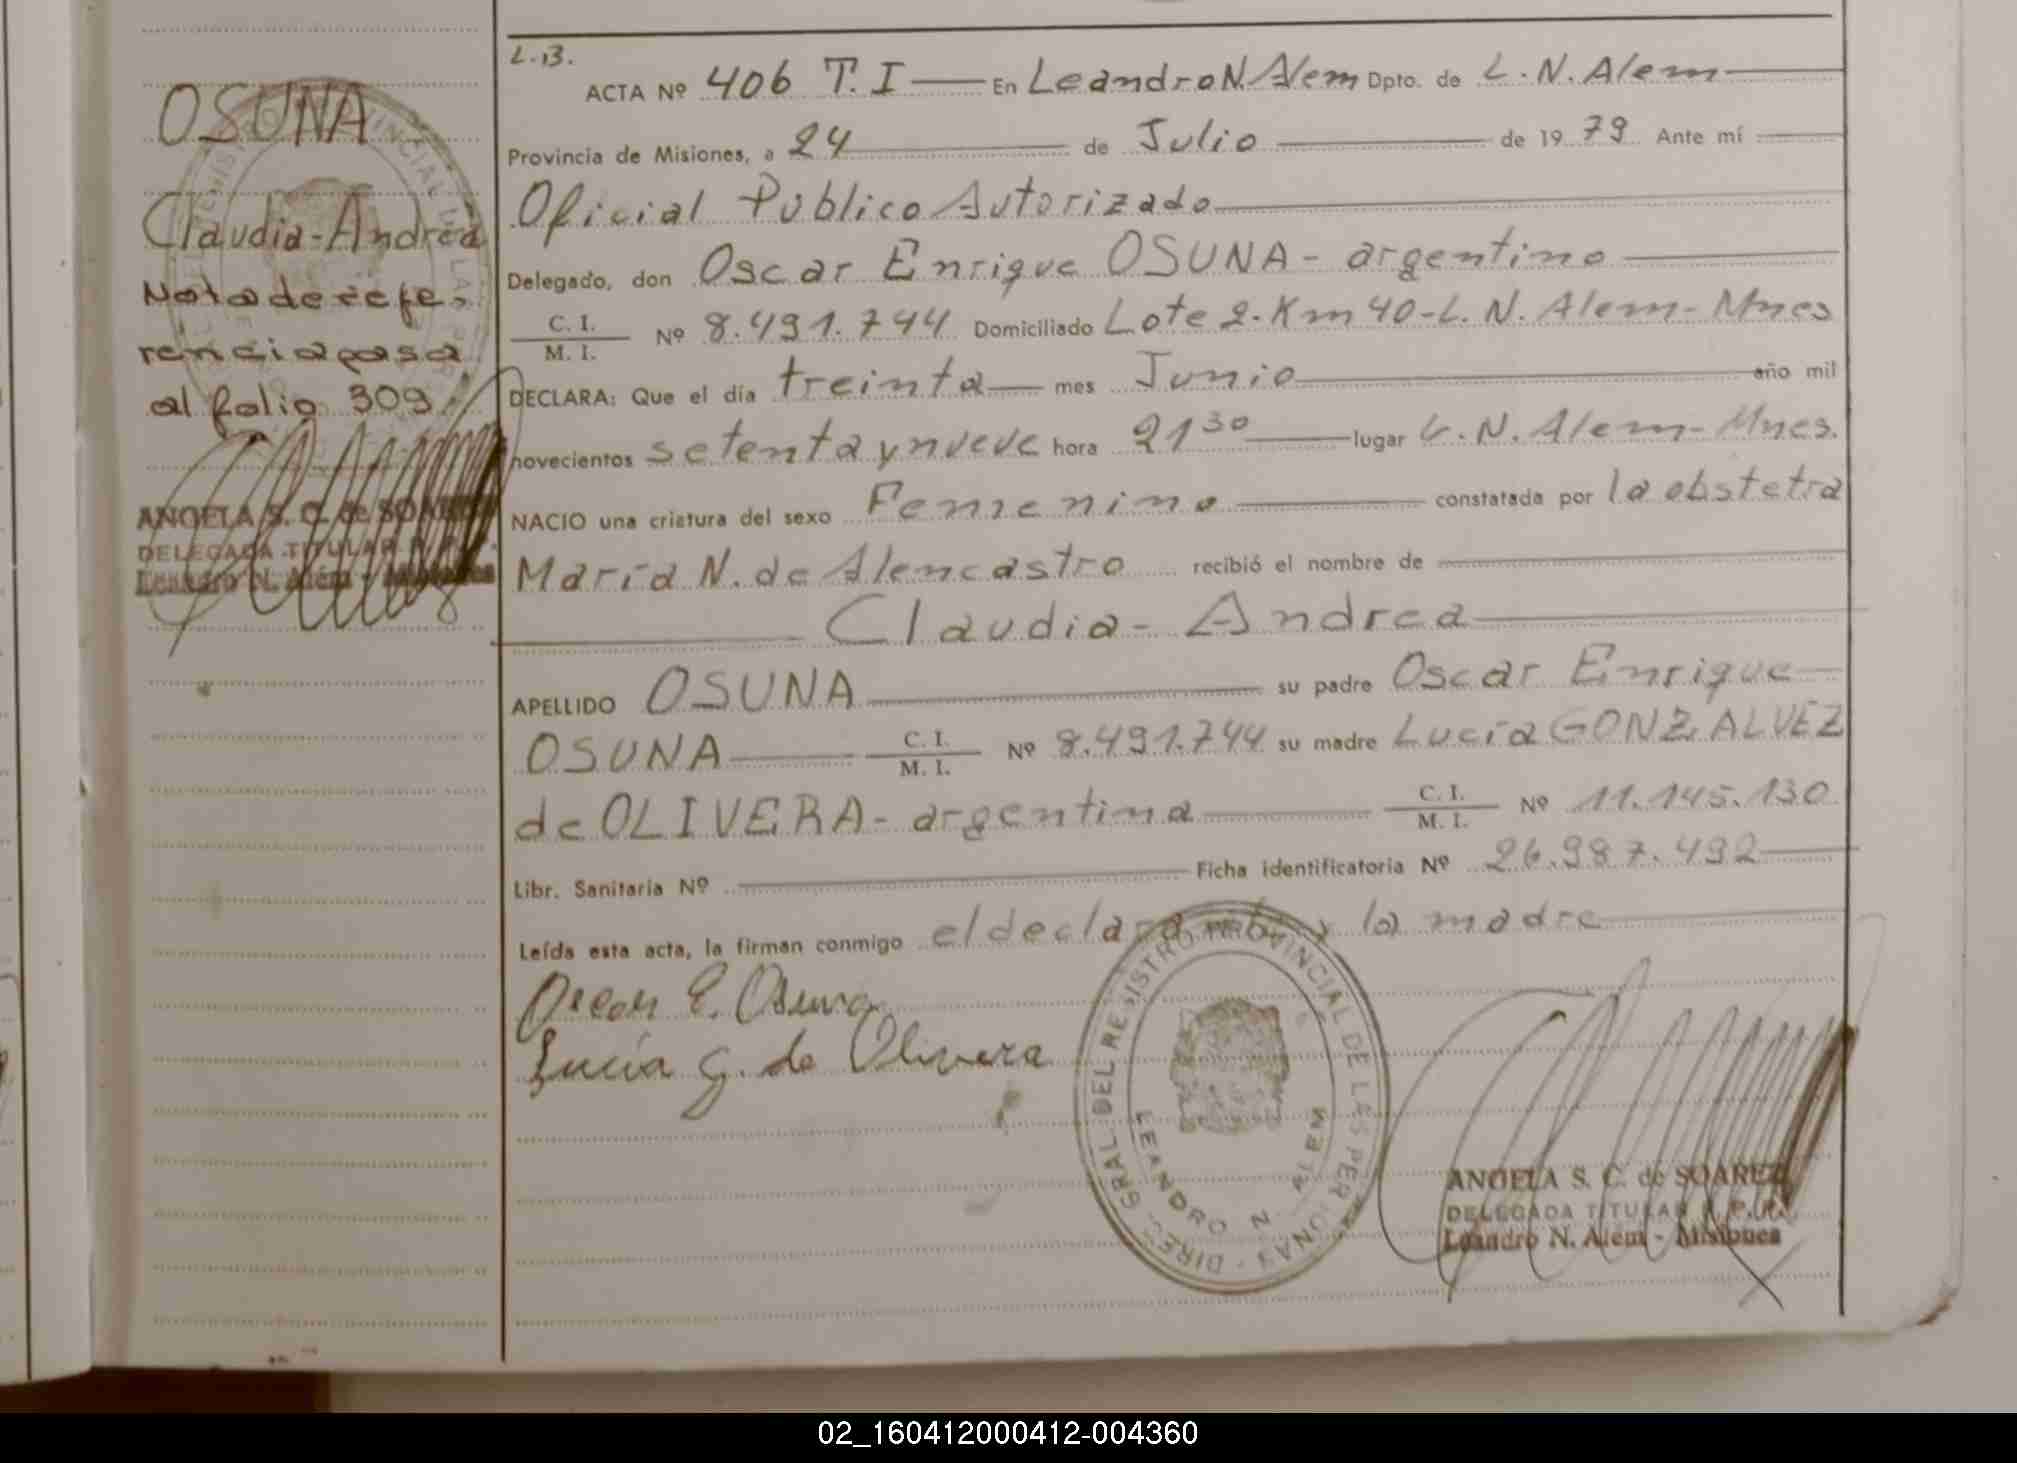 OSUNA
Claudia-Andrea
Nota de refe-
rencia pasa
al folio 309
ANGELA S. C. de SOAREZ
DELEGADA TITULAR R. P. P.
Leandro N. Além - Misiones
L.B.
ACTA Nº 406 T. I En Leandro N. Alem Dpto. de L. N. Alem
Provincia de Misiones, a 24 de Julio de 1979 Ante mí
Oficial Público Autorizado
Delegado, don Oscar Enrique OSUNA - argentino
C. I.
M. I. Nº 8.491.744 Domiciliado Lote 2. Km 40-L. N. Alem- Mnes
DECLARA: Que el día treinta mes Junio año mil
novecientos setenta y nueve hora 21 30 lugar L. N. Alem- Mnes.
NACIO una criatura del sexo Femenino constatada por la obstetra
María N. de Alencastro recibió el nombre de
Claudia - Andrea
APELLIDO OSUNA su padre Oscar Enrique
OSUNA C. I. M. I. Nº 8.491.744 su madre Lucía GONZALVEZ
de OLIVERA - argentina C. I. M. I. Nº 11.145.130
Libr. Sanitaria Nº Ficha identificatoria Nº 26.987.492
Leída esta acta, la firman conmigo el declarante y la madre
Oscar E. Osuna
Lucía G. de Olivera
DIREC. GRAL. DEL REGISTRO PROVINCIAL DE LAS PERSONAS
LEANDRO N. ALEM
ANGELA S. C. de SOAREZ
DELEGADA TITULAR R. P. P.
Leandro N. Além - Misiones
02_160412000412-004360